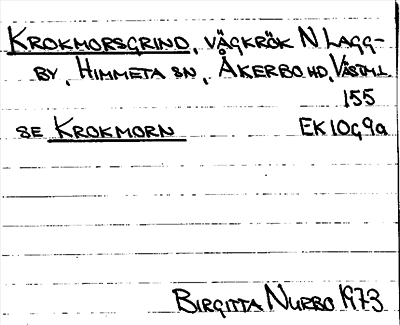 KROKMORSGRIND, VÄGKRÖK N LAGG-
BY, HIMMETA SN, ÅKERBO HD, VÄSTML
155
SE KROKMORN EK 10G9a
BIRGITTA NURBO 1973